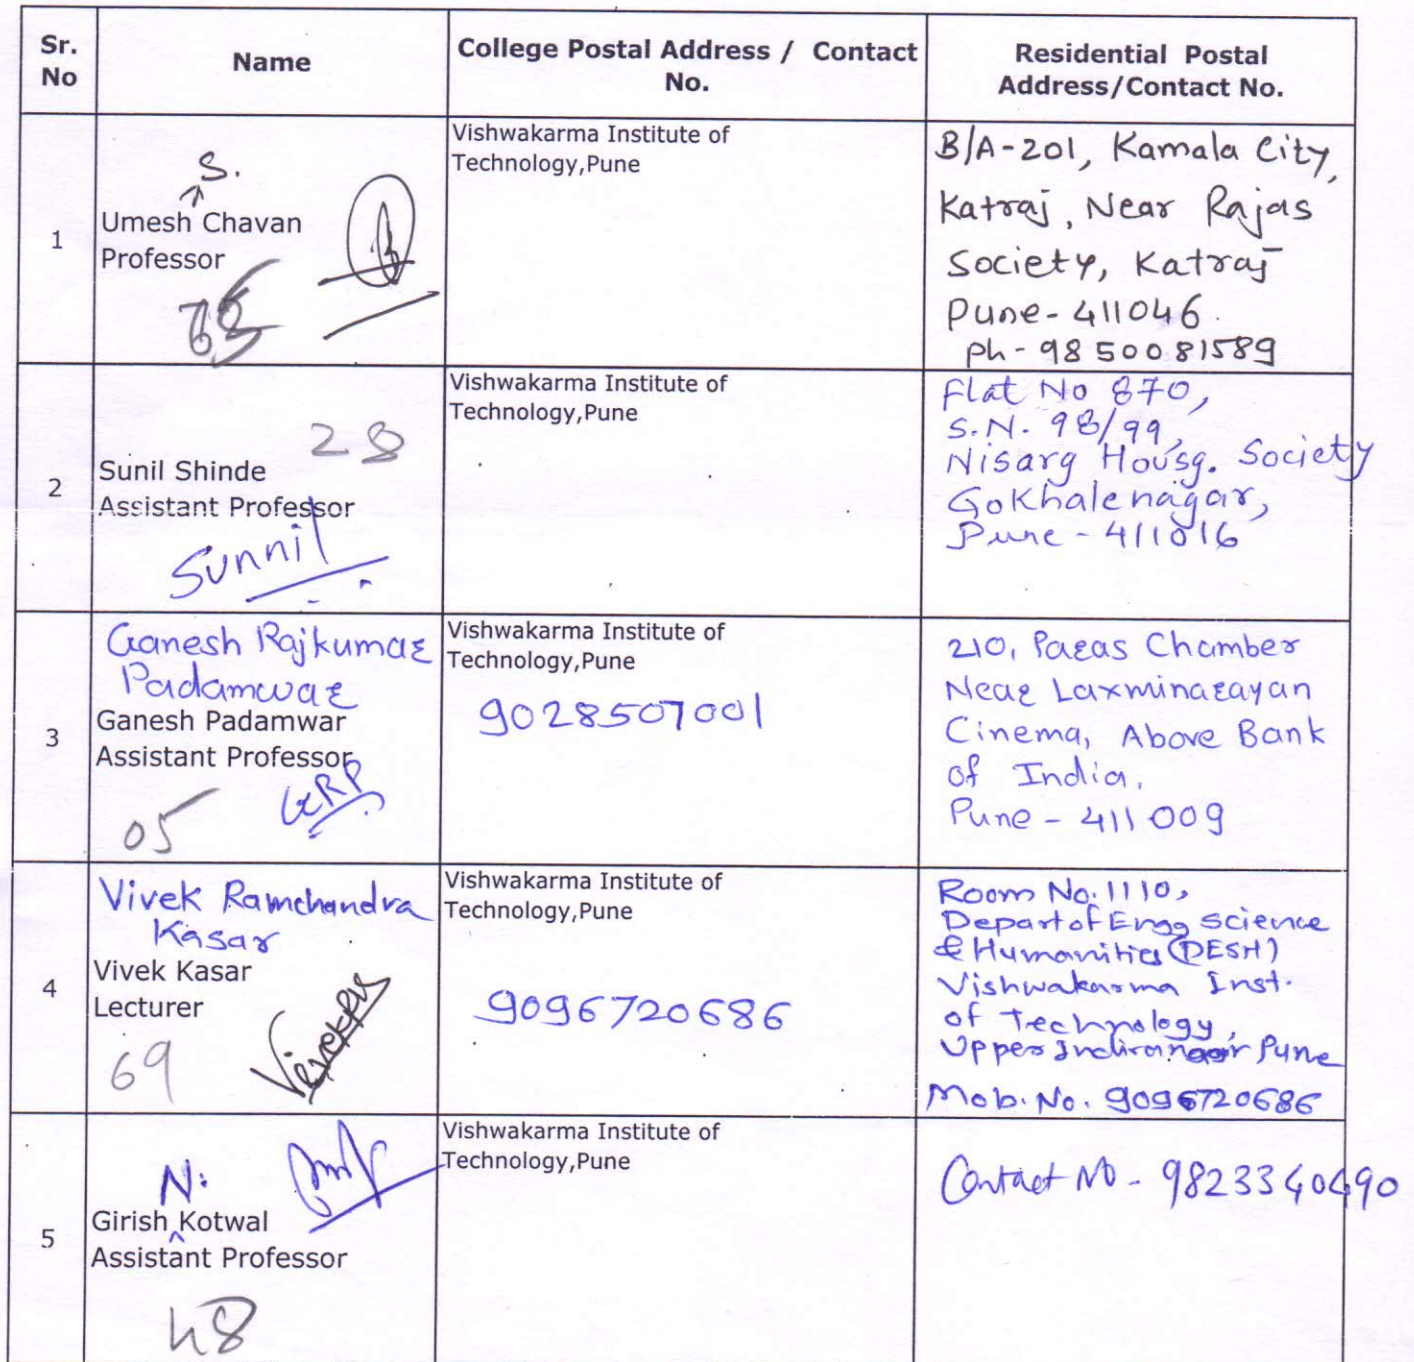 Sr. No
Name
College Postal Address / Contact No.
Residential Postal Address/Contact No.
1
S.
Umesh Chavan
Professor
Vishwakarma Institute of
Technology,Pune
B/A-201, Kamala City,
Katraj, Near Rajas
Society, Katraj
Pune- 411046.
Ph- 9850081589
2
28
Sunil Shinde
Assistant Professor
Sunnil
Vishwakarma Institute of
Technology,Pune
Flat No 870,
S.N. 98/99,
Nisarg Housg. Society
Gokhalenagar,
Pune - 411016
3
Ganesh Rajkumar
Padamwar
Ganesh Padamwar
Assistant Professor
05
GRP
Vishwakarma Institute of
Technology,Pune
9028507001
210, Paras Chamber
Near Laxminarayan
Cinema, Above Bank
of India,
Pune - 411 009
4
Vivek Ramchandra
Kasar
Vivek Kasar
Lecturer
69
Vishwakarma Institute of
Technology,Pune
9096720686
Room No. 1110,
Depart of Engg science
& Humanities (DESH)
Vishwakarma Inst.
of Technology,
Upper Indiranagar Pune
Mob. No. 9096720686
5
N.
Girish Kotwal
Assistant Professor
48
Vishwakarma Institute of
Technology,Pune
Contact No - 9823340490